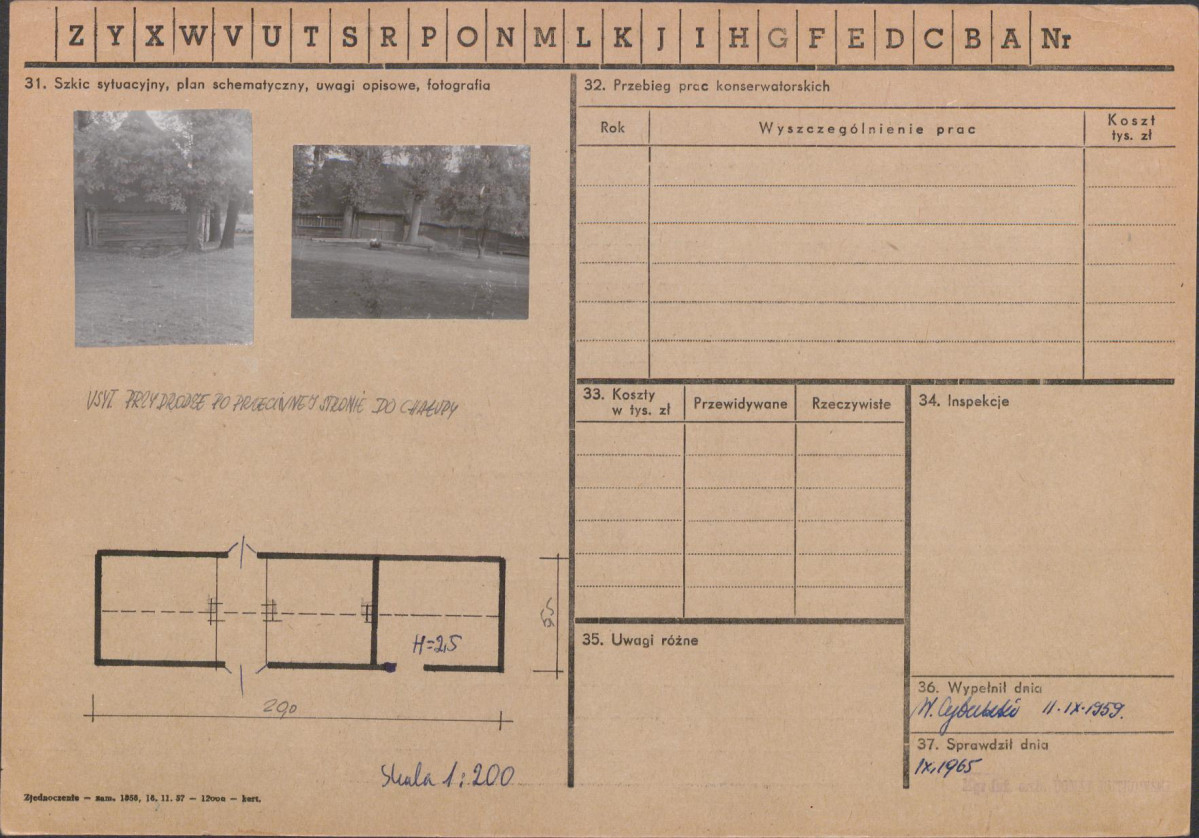 Z Y X W V U T S R P O N M L K J I H G F E D C B A Nr
31. Szkic sytuacyjny, plan schematyczny, uwagi opisowe, fotografia
USYT. PRZY DRODZE PO PRZECIWNEJ STRONIE DO CHAŁUPY
H=2,5
290
Skala 1:200
Zjednoczenie — zam. 1858, 16. 11. 57 — 12000 — kart.
32. Przebieg prac konserwatorskich
Rok
Wyszczególnienie prac
Koszt
tys. zł
33. Koszty
w tys. zł
Przewidywane
Rzeczywiste
34. Inspekcje
35. Uwagi różne
36. Wypełnił dnia
W. 11.IX.1959.
37. Sprawdził dnia
IX.1965